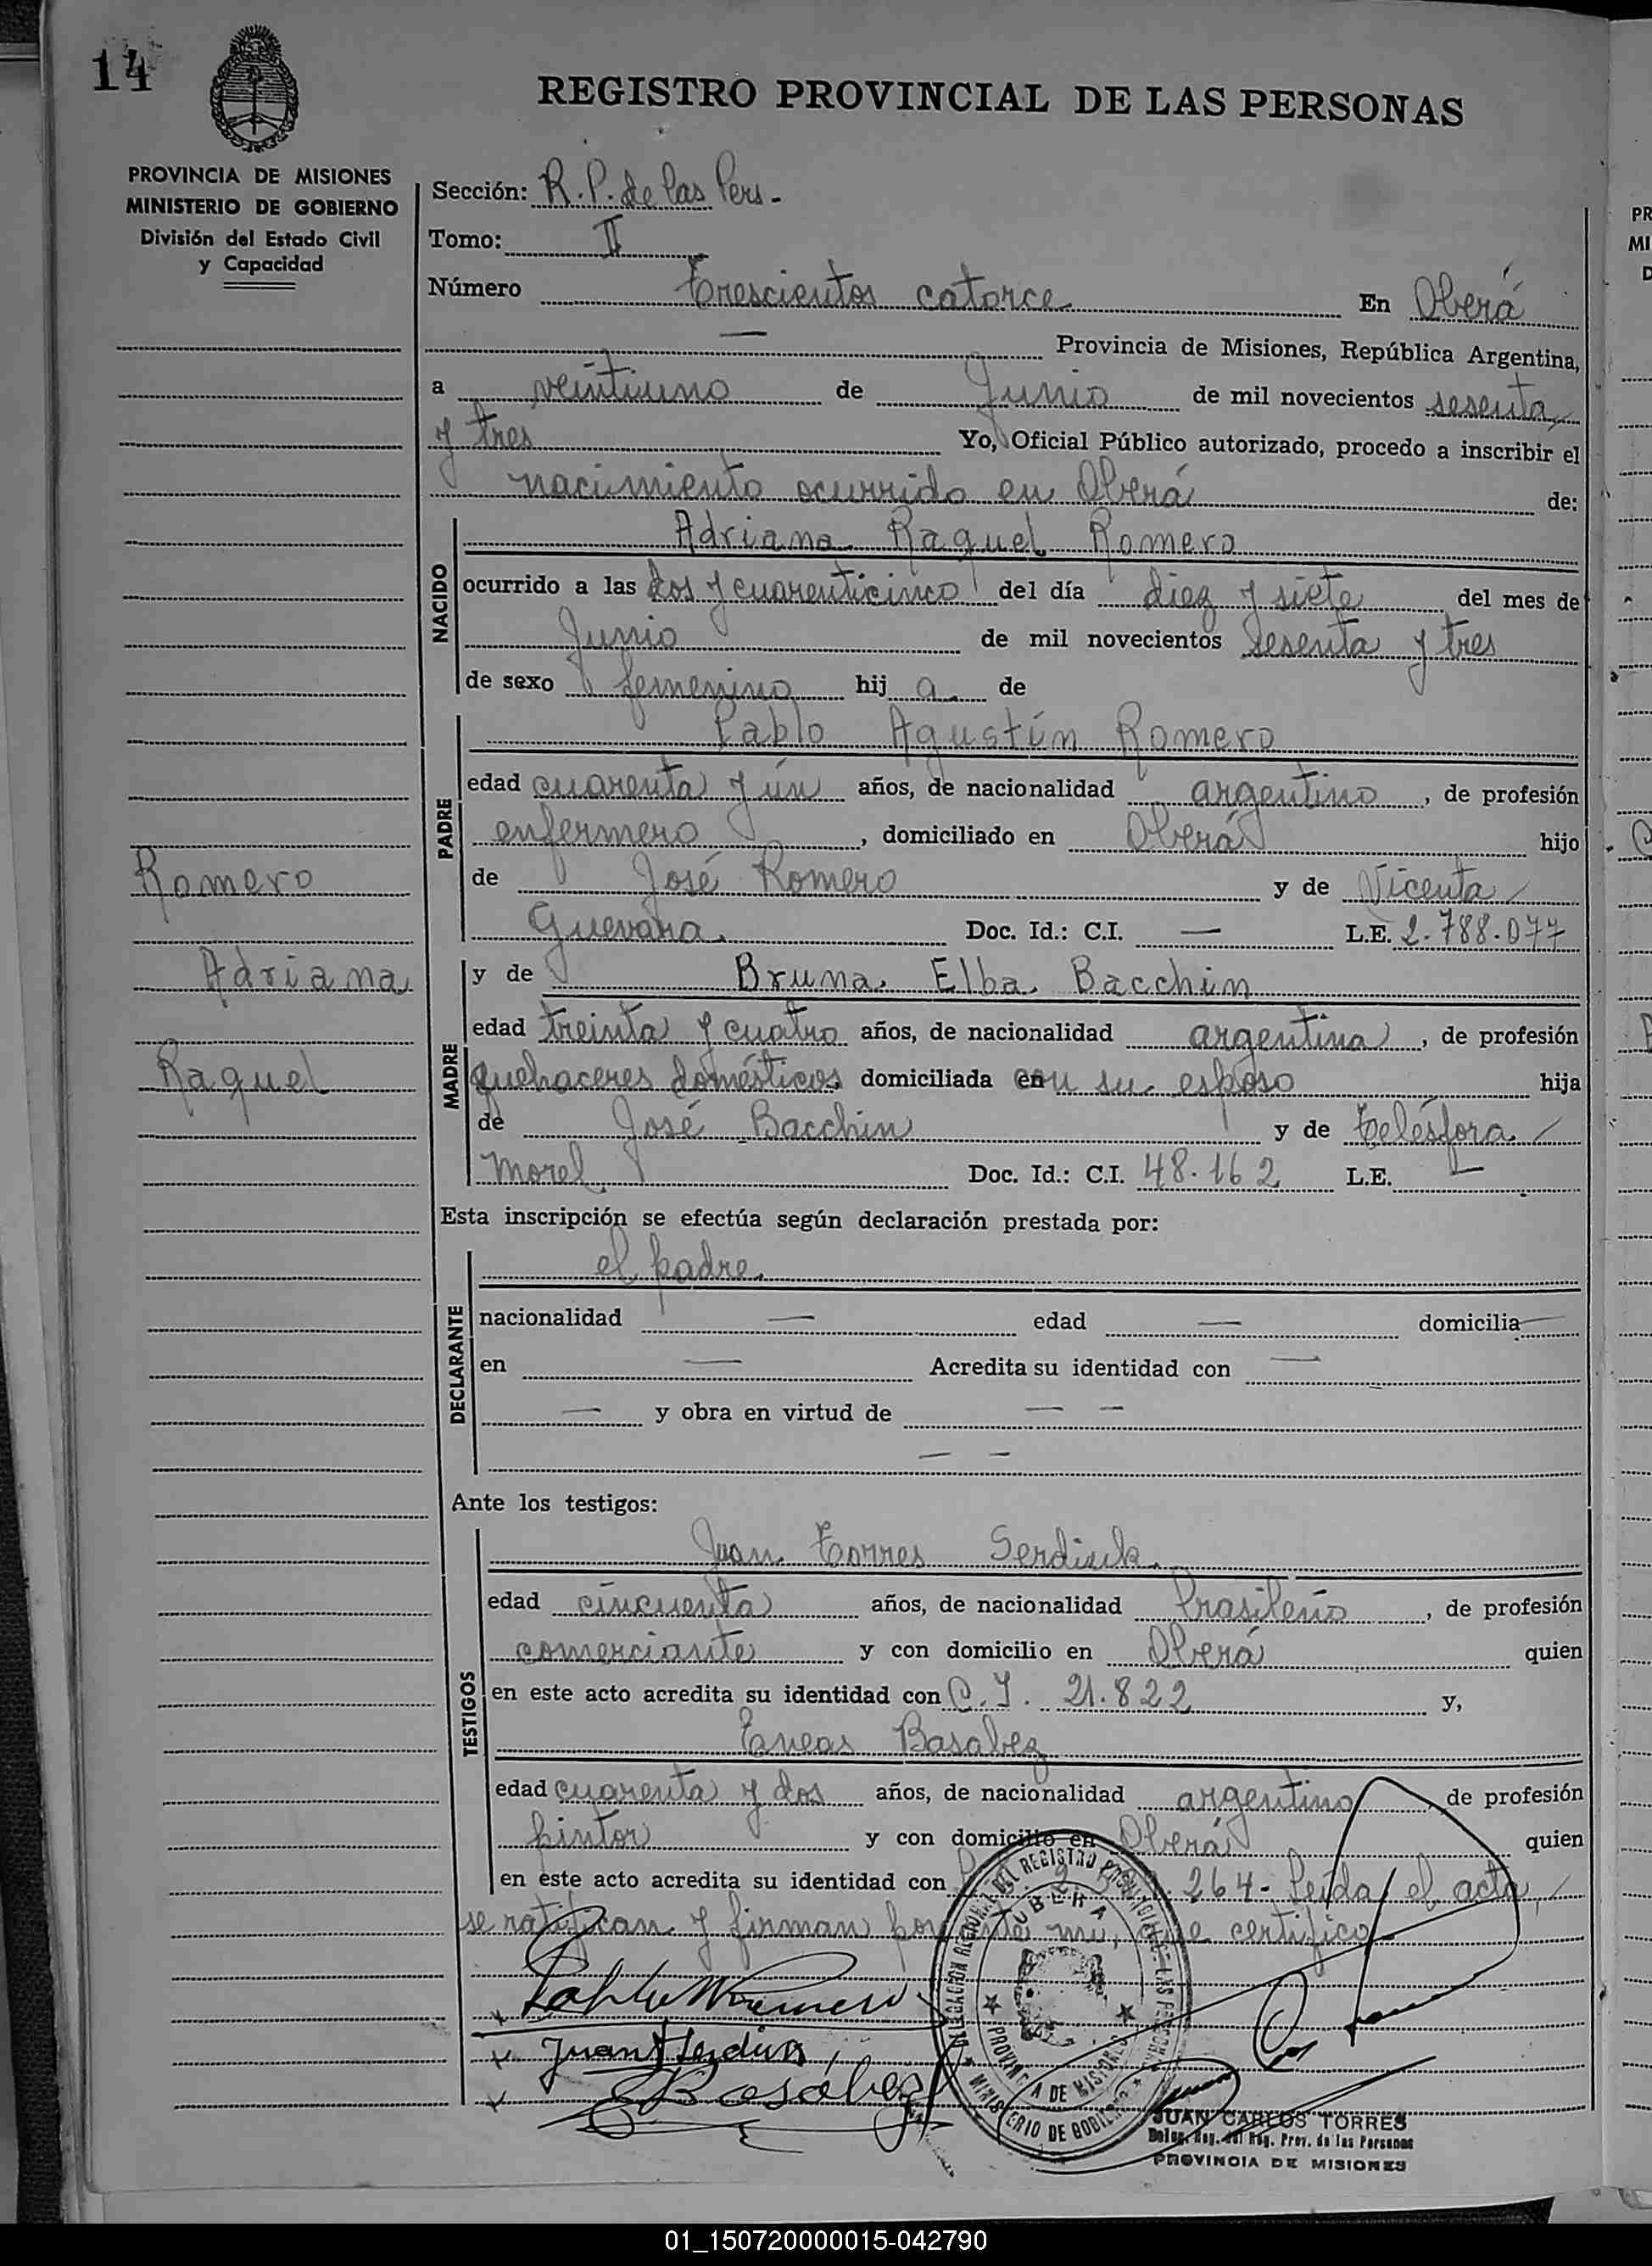 14
REGISTRO PROVINCIAL DE LAS PERSONAS
PROVINCIA DE MISIONES
MINISTERIO DE GOBIERNO
División del Estado Civil
y Capacidad
Sección: R.P. de las Pers.-
Tomo: II
Número Trescientos catorce En Oberá
— Provincia de Misiones, República Argentina,
a veintiuno de Junio de mil novecientos sesenta
y tres Yo, Oficial Público autorizado, procedo a inscribir el
nacimiento ocurrido en Oberá de:
NACIDO
Adriana Raquel Romero
ocurrido a las dos y cuarenticinco del día diez y siete del mes de
Junio de mil novecientos sesenta y tres
de sexo femenino hij a de
PADRE
Pablo Agustín Romero
edad cuarenta y ún años, de nacionalidad argentino, de profesión
enfermero, domiciliado en Oberá hijo
de José Romero y de Vicenta
Guevara. Doc. Id.: C.I. — L.E. 2.788.077
Romero
Adriana
Raquel
MADRE
y de Bruna Elba Bacchin
edad treinta y cuatro años, de nacionalidad argentina, de profesión
quehaceres domésticos domiciliada en con su esposo hija
de José Bacchin y de Telésfora
Morel Doc. Id.: C.I. 48.162 L.E. —
Esta inscripción se efectúa según declaración prestada por:
DECLARANTE
el padre.
nacionalidad — edad — domicilia —
en — Acredita su identidad con —
— y obra en virtud de — —
— —
Ante los testigos:
TESTIGOS
Juan Torres Serdiuk
edad cincuenta años, de nacionalidad brasileño, de profesión
comerciante y con domicilio en Oberá quien
en este acto acredita su identidad con C.I. 21.822 y,
Eneas Basabez
edad cuarenta y dos años, de nacionalidad argentino de profesión
pintor y con domicilio en Oberá quien
en este acto acredita su identidad con 264- Leída el acta,
se ratifican y firman por ante mi, que certifico
DELEGACION REGIONAL DEL REGISTRO PROVINCIAL DE LAS PERSONAS
OBERA
PROVINCIA DE MISIONES
MINISTERIO DE GOBIERNO
JUAN CARLOS TORRES
Deleg. Reg. del Reg. Prov. de las Personas
PROVINCIA DE MISIONES
01_150720000015-042790